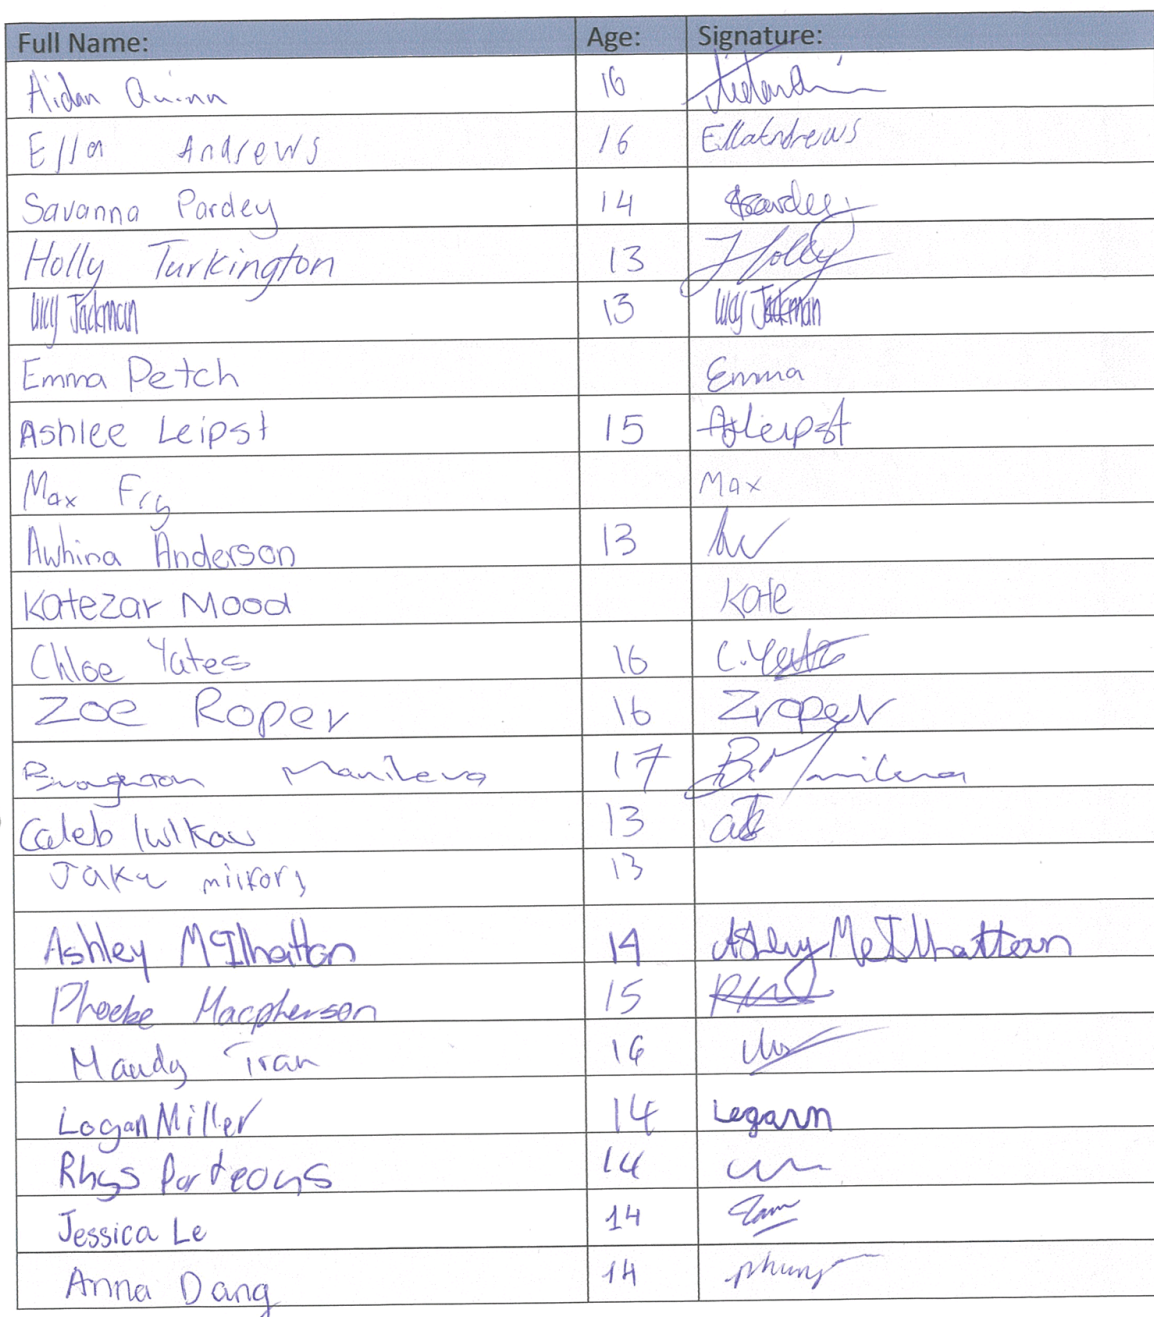 Full Name: Age: Signature:
Aidan Quinn 16
Ella Andrews 16 EllaAndrews
Savanna Pardey 14
Holly Turkington 13 Holly
Lucy Jackman 13 Lucy Jackman
Emma Petch Emma
Ashlee Leipst 15 Asleipst
Max Fry Max
Awhina Anderson 13
Katezar Mood Kate
Chloe Yates 16 C. Yates
Zoe Roper 16 Zroper
Manileva 17 B. Manileva
Caleb 13
Jake 13
Ashley McIlhatton 14 Ashley McIlhattan
Phoebe Macpherson 15
Mandy Tran 16
Logan Miller 14 Legarn
Rhys Porteous 14
Jessica Le 14
Anna Dang 14 phung